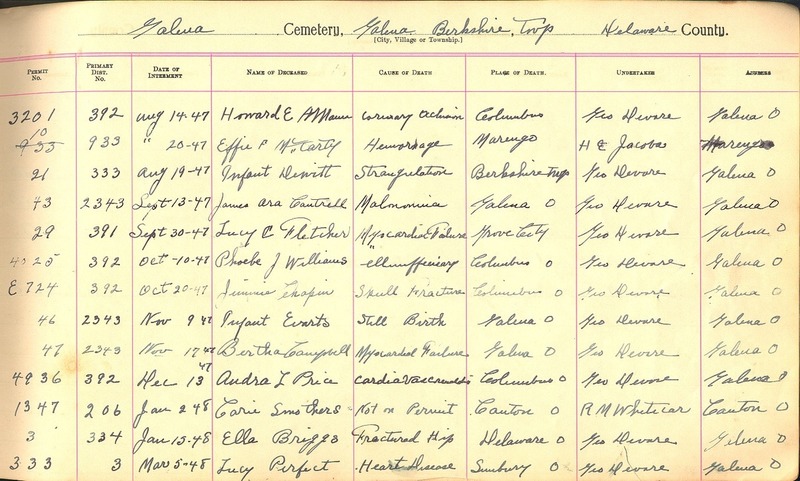 Galena Cemetery, Galena Berkshire, Twp Delaware County.
(City, Village or Township.)
PERMIT No. PRIMARY DIST. No. DATE OF INTERMENT NAME OF DECEASED CAUSE OF DEATH PLACE OF DEATH. UNDERTAKER ADDRESS
3201 392 Aug 14-47 Howard E Coronary Columbus Geo Devore Galena O
10
933 933 " 20-47 Effie P McCarty Hemorrage Marengo H E Jacobs Marengo
21 333 Aug 19-47 Infant Dewitt Strangulation Berkshire Twp Geo Devore Galena O
43 2343 Sept 13-47 James Ora Cantrell Galena O Geo Devore Galena O
29 391 Sept 30-47 Lucy C Fletcher Myocardial Failure Grove City Geo Devore Galena O
4025 392 Oct-10-47 Phoebe J Williams " Columbus O Geo Devore Galena O
E 724 392 Oct 20-47 Jimmie Chapin Skull Fracture Columbus O Geo Devore Galena O
46 2343 Nov 9 47 Infant Evarts Still Birth Galena O Geo Devore Galena O
47 2343 Nov 17 47 Bertha Campbell Myocardial Failure Galena O Geo Devore Galena O
4936 392 Dec 13 47 Audra L Price Columbus O Geo Devore Galena O
1347 206 Jan 2 48 Carie Smothers Not on Permit Canton O R M Whiticar Canton O
3 334 Jan 15-48 Ella Briggs Fractured Hip Delaware O Geo Devore Galena O
333 3 Mar 5-48 Lucy Perfect Heart Disease Sunbury O Geo Devore Galena O